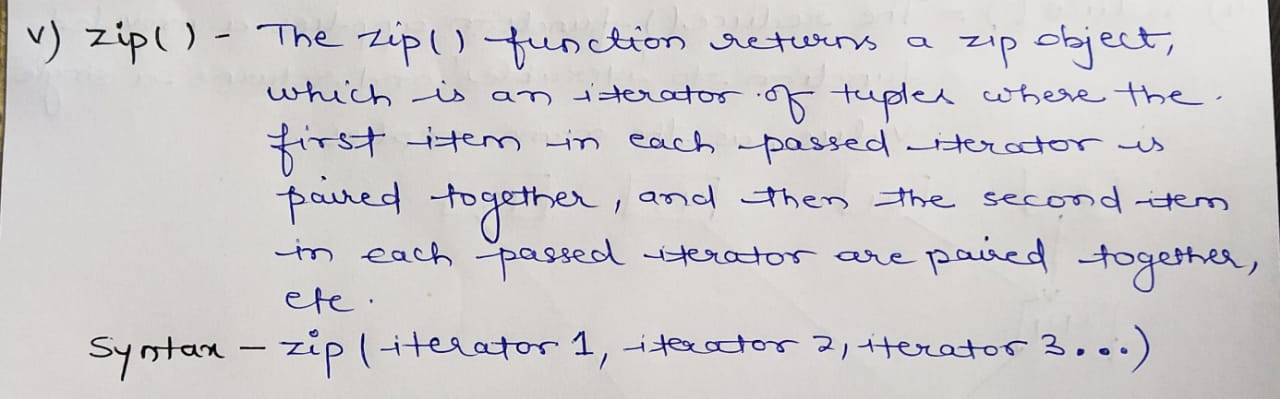 v) zip() - The zip() function returns a zip object,
which is an iterator of tuples where the
first item in each passed iterator is
paired together, and then the second item
in each passed iterator are paired together,
etc.
Syntax - zip (iterator 1, iterator 2, iterator 3...)